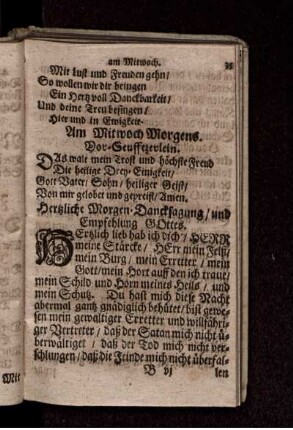 am Mitwoch. 35
Mit lust und Freuden gehn/
So wollen wir dir bringen
Ein Hertz voll Danckbarkeit/
Und deine Treu besingen/
Hier und in Ewigkeit.
Am Mitwoch Morgens.
Vor-Seufftzerlein.
DAs walt mein Trost und höchste Freud
Die heilige Drey-Einigkeit/
Gott Vater/ Sohn/ heiliger Geist/
Von mir gelobet und gepreist/ Amen.
Hertzliche Morgen-Dancksagung/ und
Empfehlung GOttes.
HErtzlich lieb hab ich dich/ HERR
meine Stärcke/ HErr mein Felß/
mein Burg/ mein Erretter/ mein
Gott/ mein Hort auff den ich traue/
mein Schild und Horn meines Heils/ und
mein Schutz. Du hast mich diese Nacht
abermal gantz gnädiglich behütet/ bist gewe-
sen mein gewaltiger Erretter und willfähri-
ger Vertreter/ daß der Satan mich nicht ü-
berwältiget/ daß der Tod mich nicht ver-
schlungen/ daß die Feinde mich nicht überfal-
B vj len
Mit